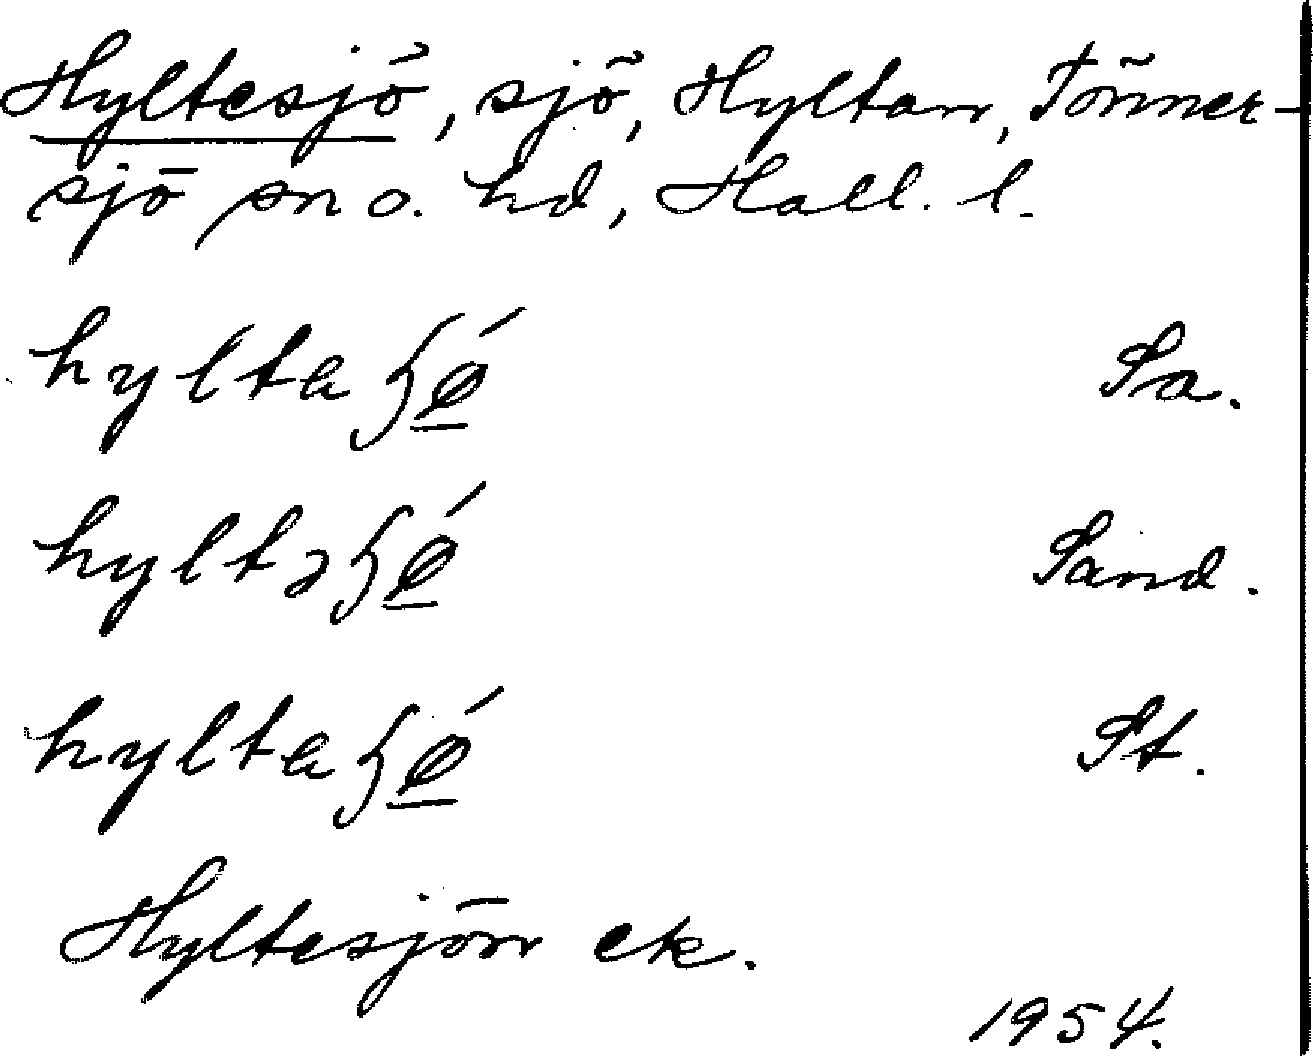 Hyltesjö, sjö, Hyltan, Tönner-
sjö sn o. hd, Hall. l.
hyltaɧǿ Sa.
hyltəɧǿ Sand.
hyltaɧǿ St.
Hyltesjön ek.
1954.